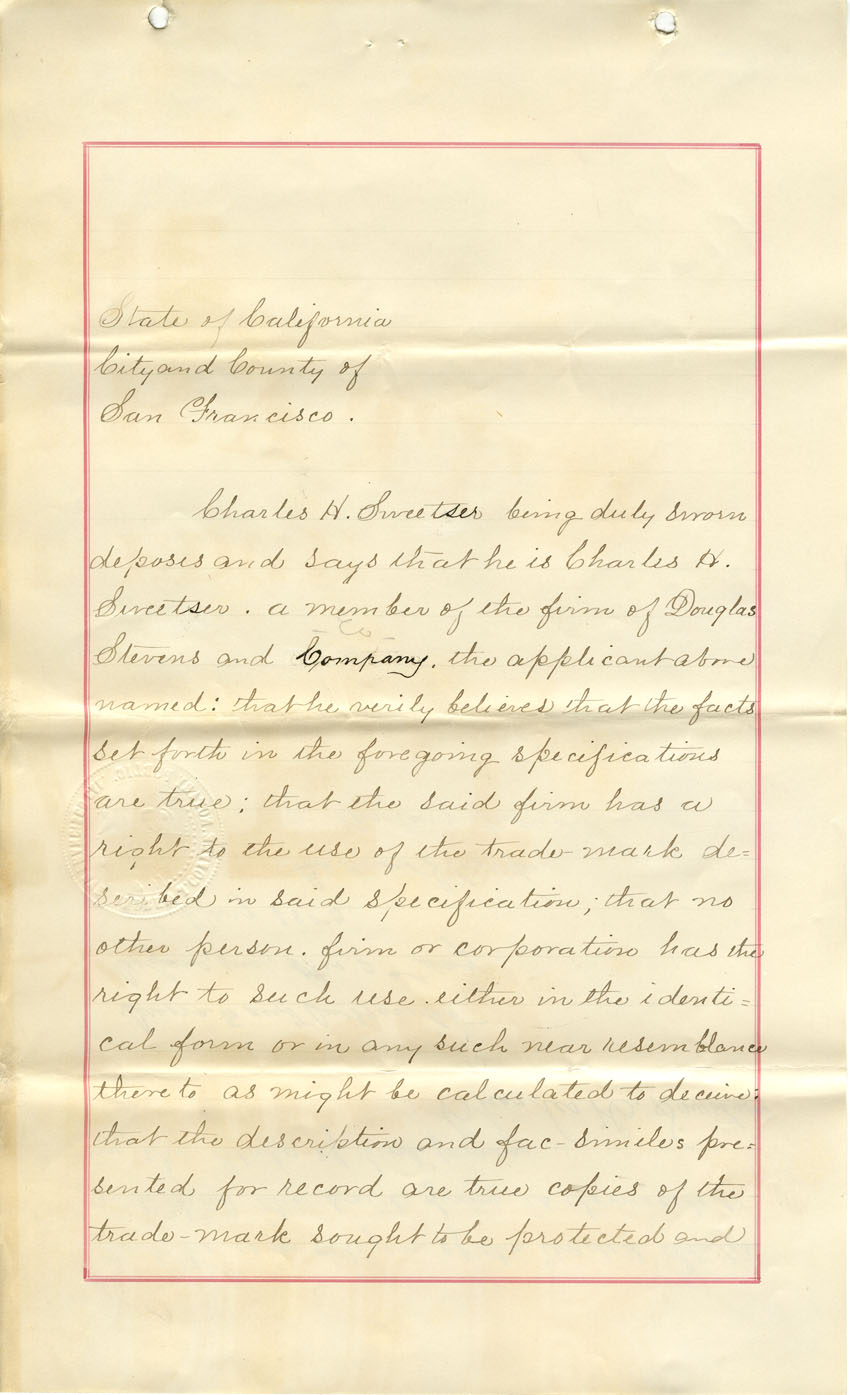 State of California
City and County of
San Francisco.
Charles H. Sweetser being duly sworn
deposes and says that he is Charles H.
Sweetser. a member of the firm of Douglas
Co
Stevens and Company. the applicant above
named: that he verily believes that the facts
set forth in the foregoing specifications
are true; that the said firm has a
right to the use of the trade-mark de=
scribed in said specification; that no
other person. firm or corporation has the
right to such use. either in the identi=
cal form or in any such near resemblance
thereto as might be calculated to deceive:
that the description and fac-similes pre=
sented for record are true copies of the
trade-mark sought to be protected and